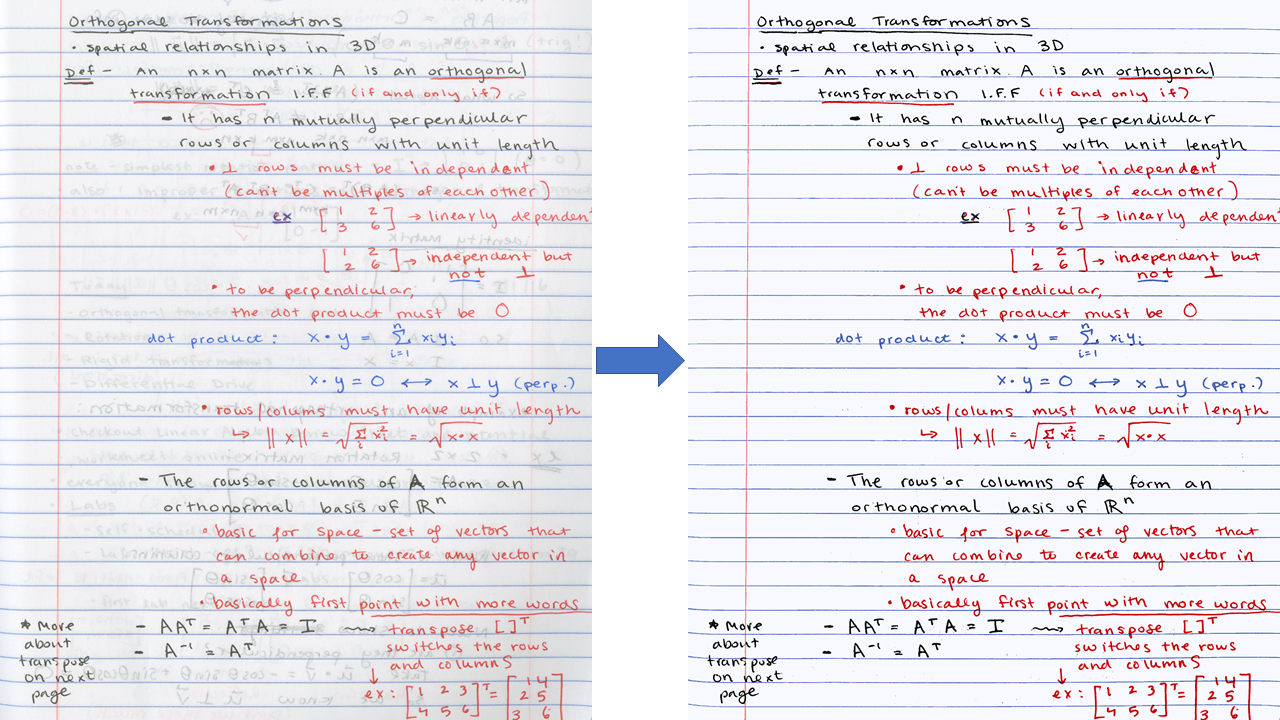 Orthogonal Transformations
• spatial relationships in 3D
Def - An n×n matrix A is an orthogonal
transformation I.F.F (if and only if)
- It has n mutually perpendicular
rows or columns with unit length
• ⊥ rows must be independent
(can't be multiples of each other)
ex [1 2 3 6] → linearly dependent
[1 2 2 6] → independent but
not ⊥
• to be perpendicular,
the dot product must be 0
dot product: x • y = n Σ i=1 xi yi
x • y = 0 ↔ x ⊥ y (perp.)
• rows/colums must have unit length
↳ ||x|| = √Σi xi² = √x•x
- The rows or columns of A form an
orthonormal basis of ℝⁿ
• basic for space - set of vectors that
can combine to create any vector in
a space
• basically first point with more words
* More about transpose on next page
- AAᵀ = AᵀA = I ⟿ transpose [ ]ᵀ
- A⁻¹ = Aᵀ switches the rows
and columns
↓
ex: [1 2 3 4 5 6]ᵀ = [1 4 2 5 3 6]
Orthogonal Transformations
• spatial relationships in 3D
Def - An n×n matrix A is an orthogonal
transformation I.F.F (if and only if)
- It has n mutually perpendicular
rows or columns with unit length
• ⊥ rows must be independent
(can't be multiples of each other)
ex [1 2 3 6] → linearly dependent
[1 2 2 6] → independent but
not ⊥
• to be perpendicular,
the dot product must be 0
dot product: x • y = n Σ i=1 xi yi
x • y = 0 ↔ x ⊥ y (perp.)
• rows/colums must have unit length
↳ ||x|| = √Σi xi² = √x•x
- The rows or columns of A form an
orthonormal basis of ℝⁿ
• basic for space - set of vectors that
can combine to create any vector in
a space
• basically first point with more words
* More about transpose on next page
- AAᵀ = AᵀA = I ⟿ transpose [ ]ᵀ
- A⁻¹ = Aᵀ switches the rows
and columns
↓
ex: [1 2 3 4 5 6]ᵀ = [1 4 2 5 3 6]